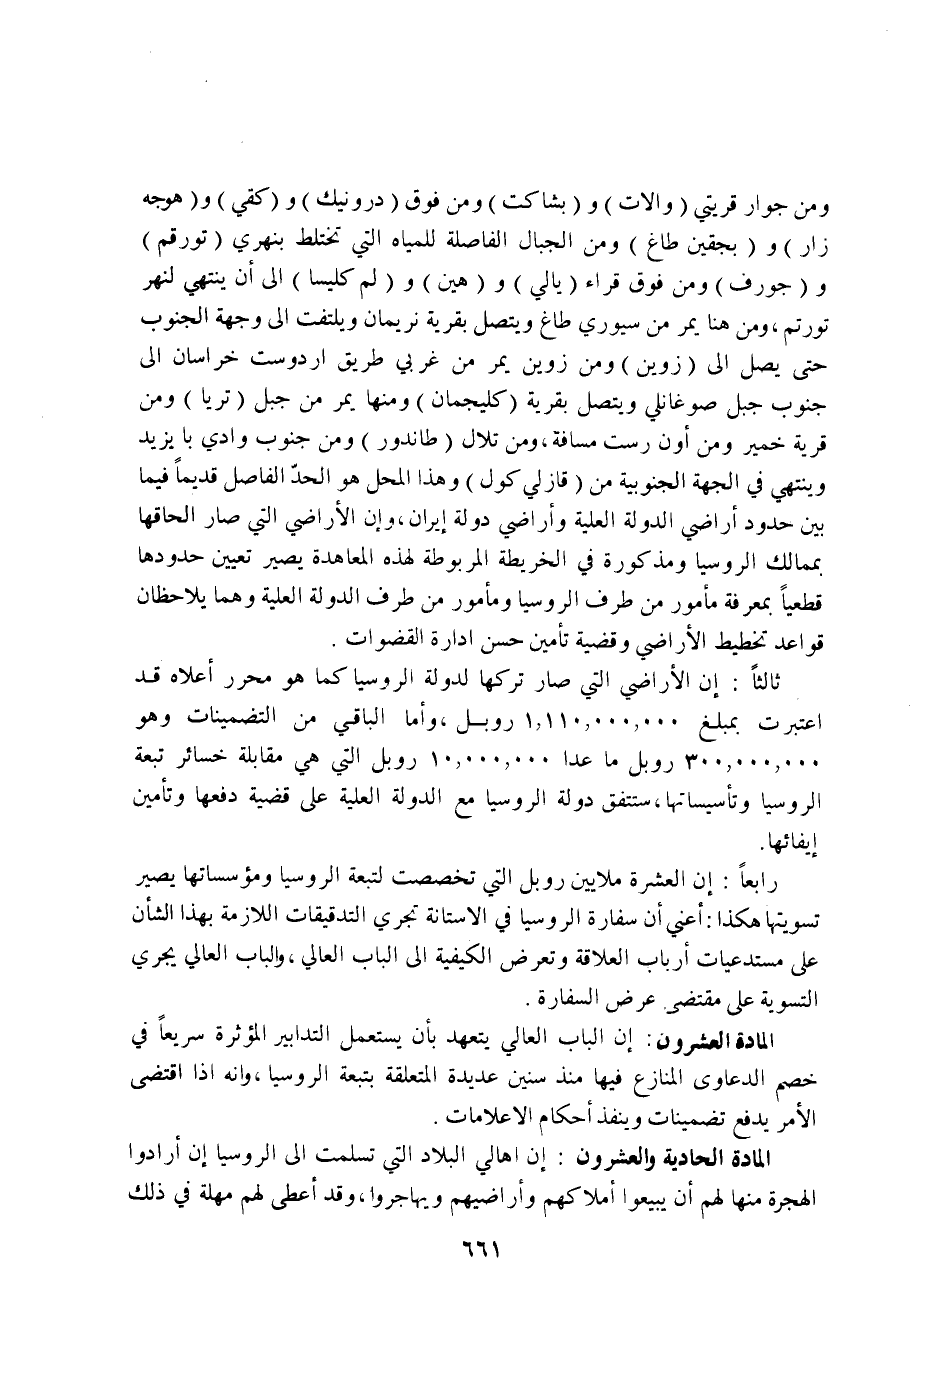 ومن جوار قريتي ( والات ) و ( بشاكت ) ومن فوق ( درونيك ) و ( كقي ) و( هوجه
زار ) و ( بجقين طاغ ) ومن الجبال الفاصلة للمياه التي تختلط بنهري ( تورقم )
و ( جورف ) ومن فوق قراء ( يالي ) و ( هين ) و ( لم كليسا ) الى أن ينتهي لنهر
تورتم ، ومن هنا يمر من سيوري طاغ ويتصل بقرية نريمان ويلتفت الى وجهة الجنوب
حتى يصل الى ( زوين ) ومن زوين يمر من غربي طريق اردوست خراسان الى
جنوب جبل صوغانلي ويتصل بقرية ( كليجمان ) ومنها يمر من جبل ( تريا ) ومن
قرية خمير ومن أون رست مسافة ، ومن تلال ( طاندور ) ومن جنوب وادي با يزيد
وينتهي في الجهة الجنوبية من ( قازلي كول ) وهذا المحل هو الحدّ الفاصل قديماً فيما
بين حدود أراضي الدولة العلية وأراضي دولة إيران ، وإن الأراضي التي صار الحاقها
بممالك الروسيا ومذكورة في الخريطة المربوطة لهذه المعاهدة يصير تعيين حدودها
قطعياً بمعرفة مأمور من طرف الروسيا ومأمور من طرف الدولة العلية وهما يلاحظان
قواعد تخطيط الأراضي وقضية تأمين حسن ادارة القضوات .
ثالثاً : إن الأراضي التي صار تركها لدولة الروسيا كما هو محرر أعلاه قد
اعتبرت بمبلغ ١,١١٠,٠٠٠,٠٠٠ روبل ، وأما الباقي من التضمينات وهو
٣٠٠,٠٠٠,٠٠٠ روبل ما عدا ١٠,٠٠٠,٠٠٠ روبل التي هي مقابلة خسائر تبعة
الروسيا وتأسيساتها ، ستتفق دولة الروسيا مع الدولة العلية على قضية دفعها وتأمين
إيفائها .
رابعاً : إن العشرة ملايين روبل التي تخصصت لتبعة الروسيا ومؤسساتها يصير
تسويتها هكذا : أعني أن سفارة الروسيا في الاستانة تجري التدقيقات اللازمة بهذا الشأن
على مستدعيات أرباب العلاقة وتعرض الكيفية الى الباب العالي ، والباب العالي يجري
التسوية على مقتضى عرض السفارة .
المادة العشرون : إن الباب العالي يتعهد بأن يستعمل التدابير المؤثرة سريعاً في
خصم الدعاوى المنازع فيها منذ سنين عديدة المتعلقة بتبعة الروسيا ، وانه اذا اقتضى
الأمر يدفع تضمينات وينفذ أحكام الاعلامات .
المادة الحادية والعشرون : إن اهالي البلاد التي تسلمت الى الروسيا إن أرادوا
الهجرة منها لهم أن يبيعوا أملاكهم وأراضيهم ويهاجروا ، وقد أعطى لهم مهلة في ذلك
٦٦١